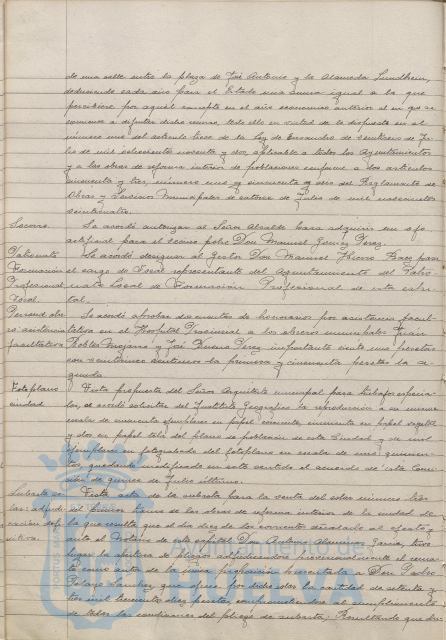 de una calle entre la plaza de José Antonio y la Alameda Sundheim,
deduciendo cada año para el Estado una suma igual a la que
percibiere por aquel concepto en el año económico anterior al en que se
comience a disfrutar dicho recurso, todo ello en virtud de lo dispuesto en el
número uno del artículo trece de la Ley de Ensanche de veintiseis de Ju-
lio de mil ochocientos noventa y dos, aplicable a todos los Ayuntamientos
y a las obras de reforma interior de poblaciones conforme a los artículos
cincuenta y tres, número uno y cincuenta y seis del Reglamento de
Obras y Servicios Municipales de catorce de Julio de mil novecientos
veinticuatro.
Socorro. Se acordó autorizar al Señor Alcalde para adquirir un ojo
artificial para el Manuel Gómez Pérez.
Se acordó designar al Gestor Don Manuel Báez para
Formación el cargo de Vocal representante del Ayuntamiento del Patro-
Profesional nato Local de Formación Profesional de esta capi-
Vocal. tal.
Se acordó aprobar dos cuentas de honorarios por asistencia facul-
asistencia tativa en el Hospital Provincial a los obreros municipales Juan
facultativa Robles Mojarro y José Pérez importante siete pesetas
con céntimos la primera y cincuenta pesetas la se-
gunda.
Fotoplano Vista propuesta del Señor Arquitecto municipal para trabajos especia-
ciudad les, se acordó solicitar del Instituto Geográfico la reproducción a su misma
escala de cuarenta ejemplares en papel corriente, cincuenta en papel vegetal
y dos en papel tela del plano de población de esta Ciudad y de un
ejemplar en fotograbado del fotoplano en escala de mil quinien-
tos, quedando modificado en este sentido el acuerdo de esta Comi-
sión de quince de Julio último.
Subasta Vista acta de la subasta para la venta del solar número
adjudi- del primer tramo de las obras de reforma interior de la ciudad
cación defi- la que resulta que el día diez de los corrientes señalado al efecto y
nitiva. ante el Notario de esta capital Don Antonio García, tuvo
lugar la apertura de pliegos adjudicándose provisionalmente el rema-
te como autor de la única proposición presentada a Don Pedro
Pelayo Sánchez que ofrece por dicho solar la cantidad de setenta y
tres mil trescientas diez pesetas comprometiéndose al cumplimiento
de todas las condiciones del pliego de subasta; Resultando que du-
Ayuntamiento de
HUELVA